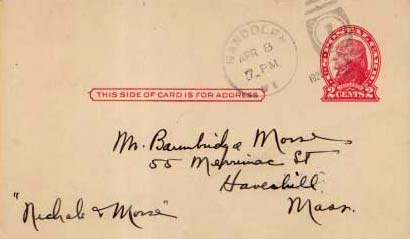 RANDOLPH
APR 8
7 PM
THIS SIDE OF CARD IS FOR ADDRESS
2 CENTS 2
Mr. Baunbridge Morse
55 Merrimac St
Haverhill
Mass.
"Nichols & Morse"